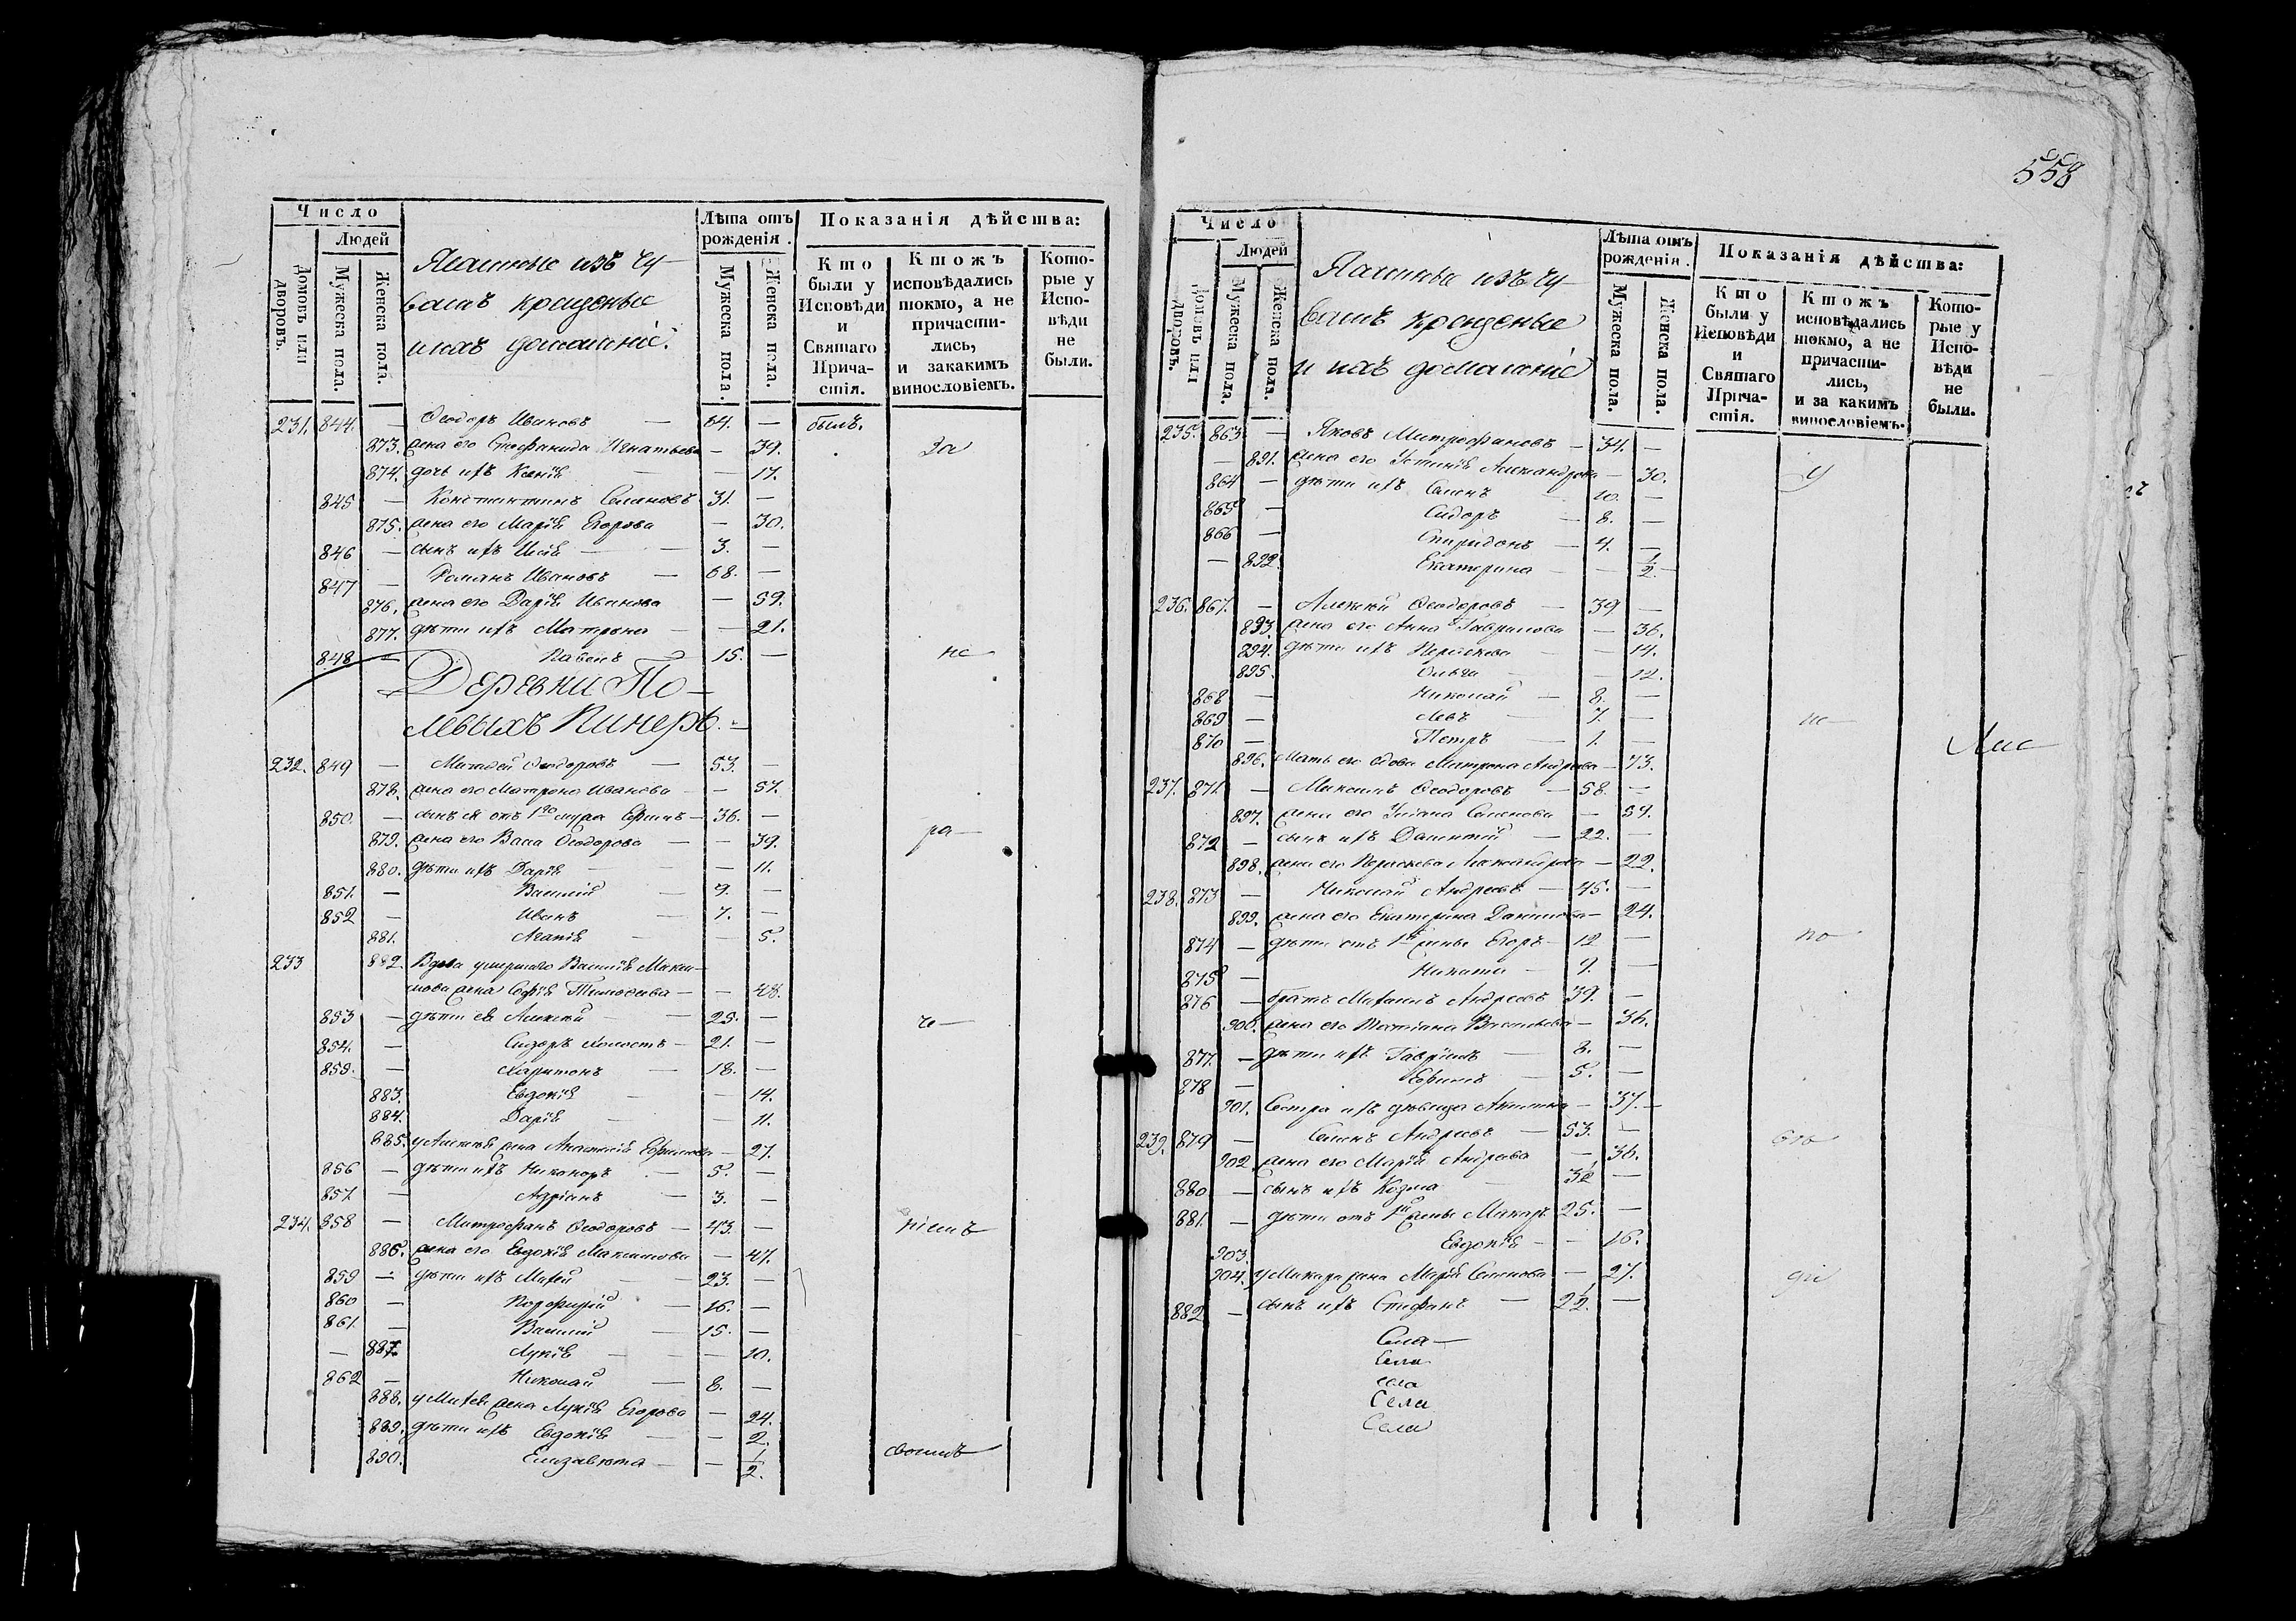 558
Число
Людей
Домовъ или дворовъ.
Мужеска пола.
Женска пола.
Ясашные изъ чу-
вашъ крещеные
и ихъ домашніе.
Лѣта отъ рожденія.
Мужеска пола.
Женска пола.
Показанія дѣйства:
Кто были у Исповѣди и Святаго Прича-стія.
Ктожъ исповѣдались токмо, а не причасти-лись, и закакимъ винословіемъ.
Кото-рые у Испо-вѣди не были.
231. 844. — Ѳеодоръ Ивановъ — 64. — былъ.
873. жена его Стефанида Игнатьева — 39. За
874. дочь ихъ Ксенія — 17.
845 — Константинъ Семеновъ 31. —
875. жена его Марія Егорова — 30.
846 — сынъ ихъ Илія — 3. —
847 — Романъ Ивановъ — 68. —
876. жена его Дарія Иванова — 59.
877. дѣти ихъ Матрена — 21.
848 — Павелъ — 15. — не
Деревни По-
левыхъ Пинеръ. —
232. 849 — Ѳеодоровъ — 53. —
878. жена его Матрона Иванова — 57.
850. — сынъ ея отъ 1го мужа — 36. — ра—
879. жена его Васса Ѳеодорова — 39.
880. дѣти ихъ Дарія — 11.
851. — Василій — 9. —
852 — Иванъ — 7. —
881. Агапія — 5.
233 882. Вдова умершаго Василія Макси-
мова жена Софія Тимоѳеева — 48.
853 — дѣти ея Алексѣй — 25. — че—
854. — Сидоръ холостъ — 21. —
855. — Харитонъ — 18. —
883. Евдокія — 14.
884. Дарія — 11.
885. у Алексѣя жена Анастасія Ефимова — 27.
856 — дѣти ихъ Никаноръ — 5. —
857. — Адріанъ — 3. —
234. 858 — Митрофанъ Ѳеодоровъ — 43. — ніемъ
886. жена его Евдокія Максимова — 47.
859 — дѣти ихъ Матѳей — 23. —
860 — Порфирій — 16. —
861. — Василій — 15. —
— 887. Лукія — 10.
862 — Николай — 8. —
888. у Матѳея жена Лукія Егорова — 24.
889. дѣти ихъ Евдокія — 2.
890. Елизавета — 1/2. своимъ
Число
Людей
Домовъ или дворовъ.
Мужеска пола.
Женска пола.
Ясашные изъ чу-
вашъ крещеные
и ихъ домашніе
Лѣта отъ рожденія.
Мужеска пола.
Женска пола.
Показанія дѣйства:
Кто были у Исповѣди и Святаго Прича-стія.
Ктожъ исповѣдались токмо, а не причасти-лись, и за какимъ винословіемъ.
Кото-рые у Испо-вѣди не были.
235. 863. — Яковъ Митрофановъ — 34. —
— 891. жена его Устинія Александрова — 30. у
864 — дѣти ихъ Семенъ 10. —
865 — Сидоръ — 8. —
866 — Спиридонъ — 4. —
— 892. Екатерина — 1/2.
236. 867. — Алексѣй Ѳеодоровъ — 39 —
893. жена его Анна Гаврилова — 36.
894. дѣти ихъ Параскева — 14.
895. Ольга — 12.
868 — Николай — 8. —
869 — Левъ — 7. — не—
870 — Петръ — 1. —
Лис
896. Мать его вдова Матрона Андреева — 73.
237. 871. — Максимъ Ѳеодоровъ — 58. —
897. жена его Уліана Семенова — 54.
872 — сынъ ихъ — 22. —
898. жена его Параскева Александрова — 22.
238. 873 — Николай Андреевъ — 45. —
899. жена его Екатерина Данилова — 24.
874 — дѣти отъ 1й жены Егоръ — 12 — по
875 — Никита — 9. —
876 — братъ Михаилъ Андреевъ 39. —
900. жена его Татіана Васильева — 36.
877. — дѣти ихъ Гавріилъ — 8. —
878 — Ефимъ — 5. —
901. Сестра ихъ дѣвица Акилина — 37. —
239. 879 — Семенъ Андреевъ — 53. — бъ
902. жена его Марія Андреева — 36.
880 — сынъ ихъ Козма — 3 1/2 —
881. — дѣти отъ 1й жены Макаръ 25. —
903. Евдокія — 16.
904. у Макара жена Марія Семенова — 27.
882 — сынъ ихъ Стефанъ — 2 1/2. —
Села—
Села
села
Села
Села